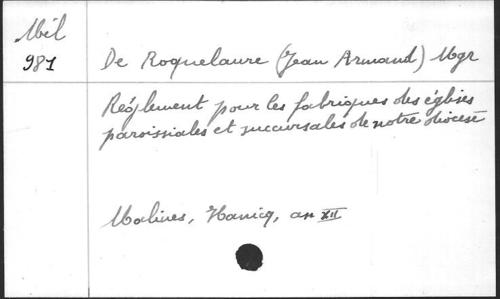 Mél
981
De Roquelaure (Jean Armand) Mgr
Réglement pour les fabriques des églises
paroissiales et succursales de notre diocèse
Malines, Hanicq, an XII